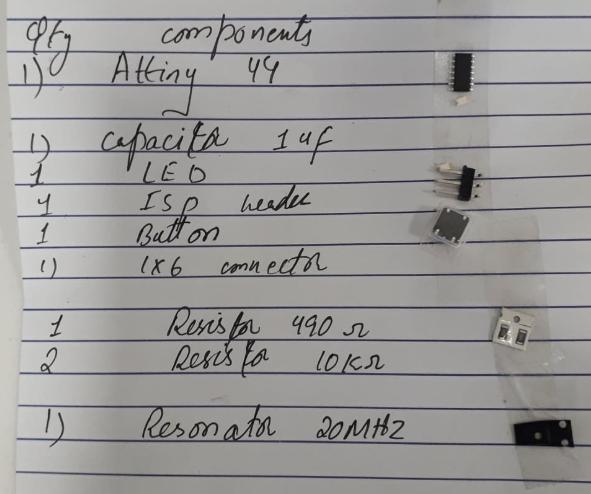 Qty components
1) Attiny 44
1) Capacitor 1uf
1 LED
1 ISP header
1 Button
1) 1x6 connector
1 Resistor 490 Ω
2 Resistor 10KΩ
1) Resonator 20MHz